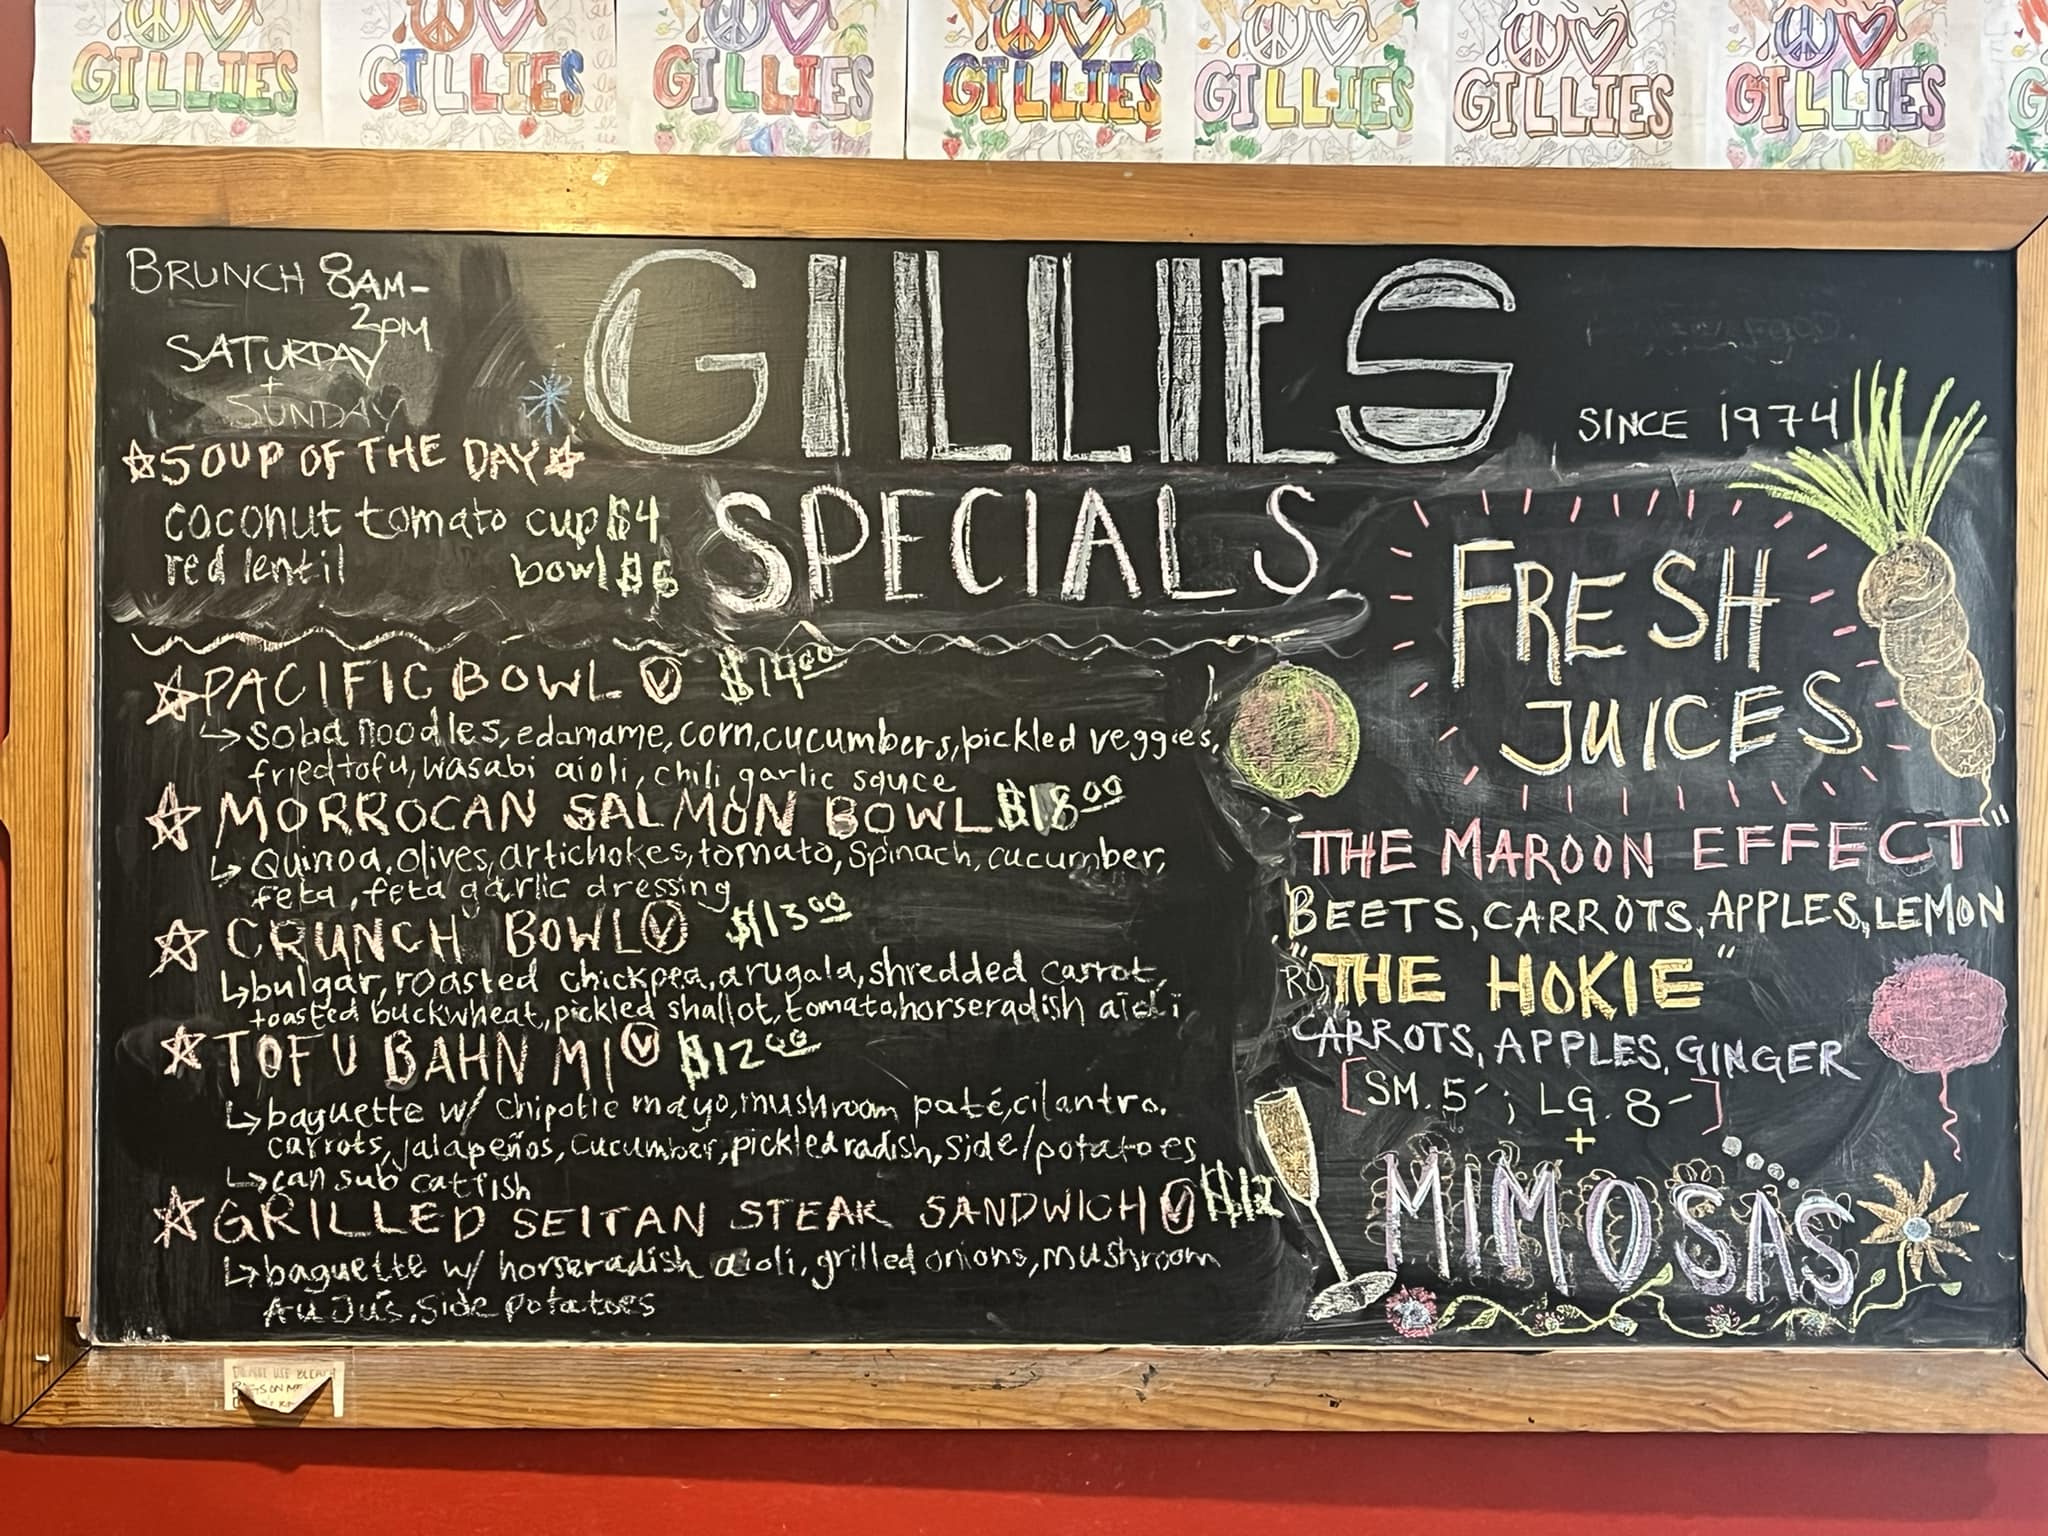 GILLIES GILLIES GILLIES GILLIES GILLIES GILLIES GILLIES G
BRUNCH 8AM-
2PM
SATURDAY
+
SUNDAY
GILLIES
SINCE 1974
SPECIALS
SOUP OF THE DAY
coconut tomato cup $4
red lentil bowl $6
PACIFIC BOWL V $14.00
soba noodles, edamame, corn, cucumbers, pickled veggies,
fried tofu, wasabi aioli, chili garlic sauce
MORROCAN SALMON BOWL $18.00
Quinoa, olives, artichokes, tomato, spinach, cucumber,
feta, feta garlic dressing
CRUNCH BOWL V $13.00
bulgar, roasted chickpea, arugala, shredded carrot,
toasted buckwheat, pickled shallot, tomato, horseradish aioli
TOFU BAHN MI V $12.00
baguette w/ chipotle mayo, mushroom paté, cilantro,
carrots, jalapeños, cucumber, pickled radish, side/potatoes
can sub catfish
GRILLED SEITAN STEAK SANDWICH V $12
baguette w/ horseradish aioli, grilled onions, mushroom
Au Jus, side potatoes
FRESH
JUICES
THE MAROON EFFECT"
BEETS, CARROTS, APPLES, LEMON
"THE HOKIE"
CARROTS, APPLES, GINGER
[SM. 5-; LG. 8-]
+
MIMOSAS